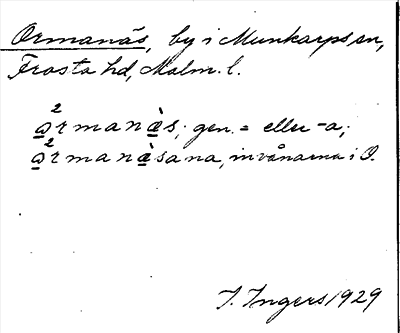 Ormanäs, by i Munkarps sn,
Frosta hd, Malm. l.
o²rmanæ̀s; gen. = eller -a;
o²rmanæ̀sana, invånarna i O.
I. Ingers 1929